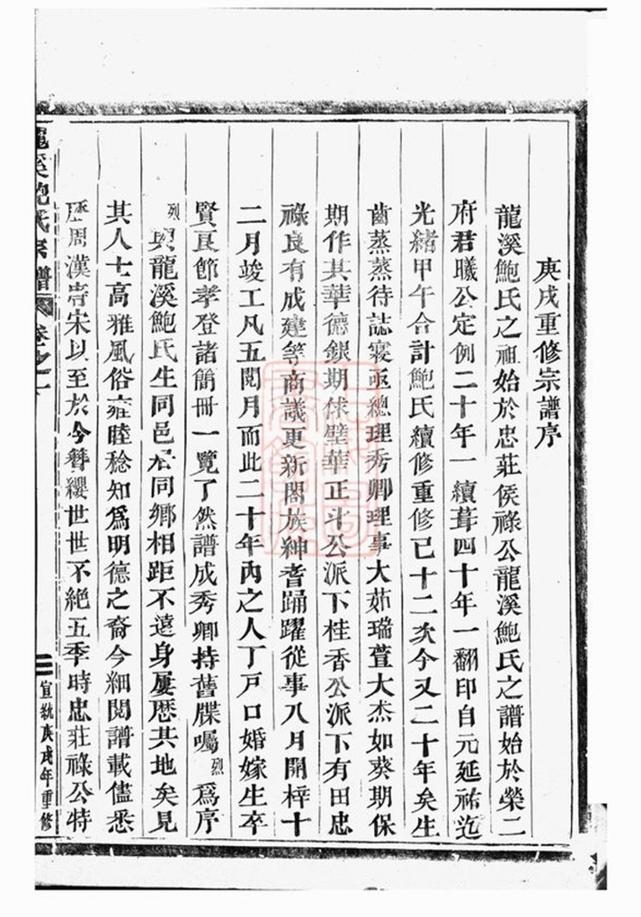 庚戌重修宗譜序
龍溪鮑氏之祖始於忠莊侯祿公龍溪鮑氏之譜始於榮二
府君曦公定例二十年一續葺四十年一翻印自元延祐迄
光緒甲午合計鮑氏續修重修已十二次今又二十年矣生
齒蒸蒸待誌寢亟總理秀卿理事大茹瑞萱大杰如葵期保
期作其華德銀期俅璧華正斗公派下桂香公派下有田忠
祿良有成建等商議更新闔族紳耆踊躍從事八月開梓十
二月竣工凡五閱月而此二十年內之人丁戸口婚嫁生卒
賢良節孝登諸簡冊一覽了然譜成秀卿持舊牒囑烈為序
烈與龍溪鮑氏生同邑居同鄉相距不遠身屢歷其地矣見
其人士高雅風俗雍睦稔知為明德之裔今細閱譜載儘悉
歷周漢晉宋以至於今簪纓世世不絕五季時忠莊祿公特
龍溪鮑氏宗譜 卷之一 宣統庚戌年重修